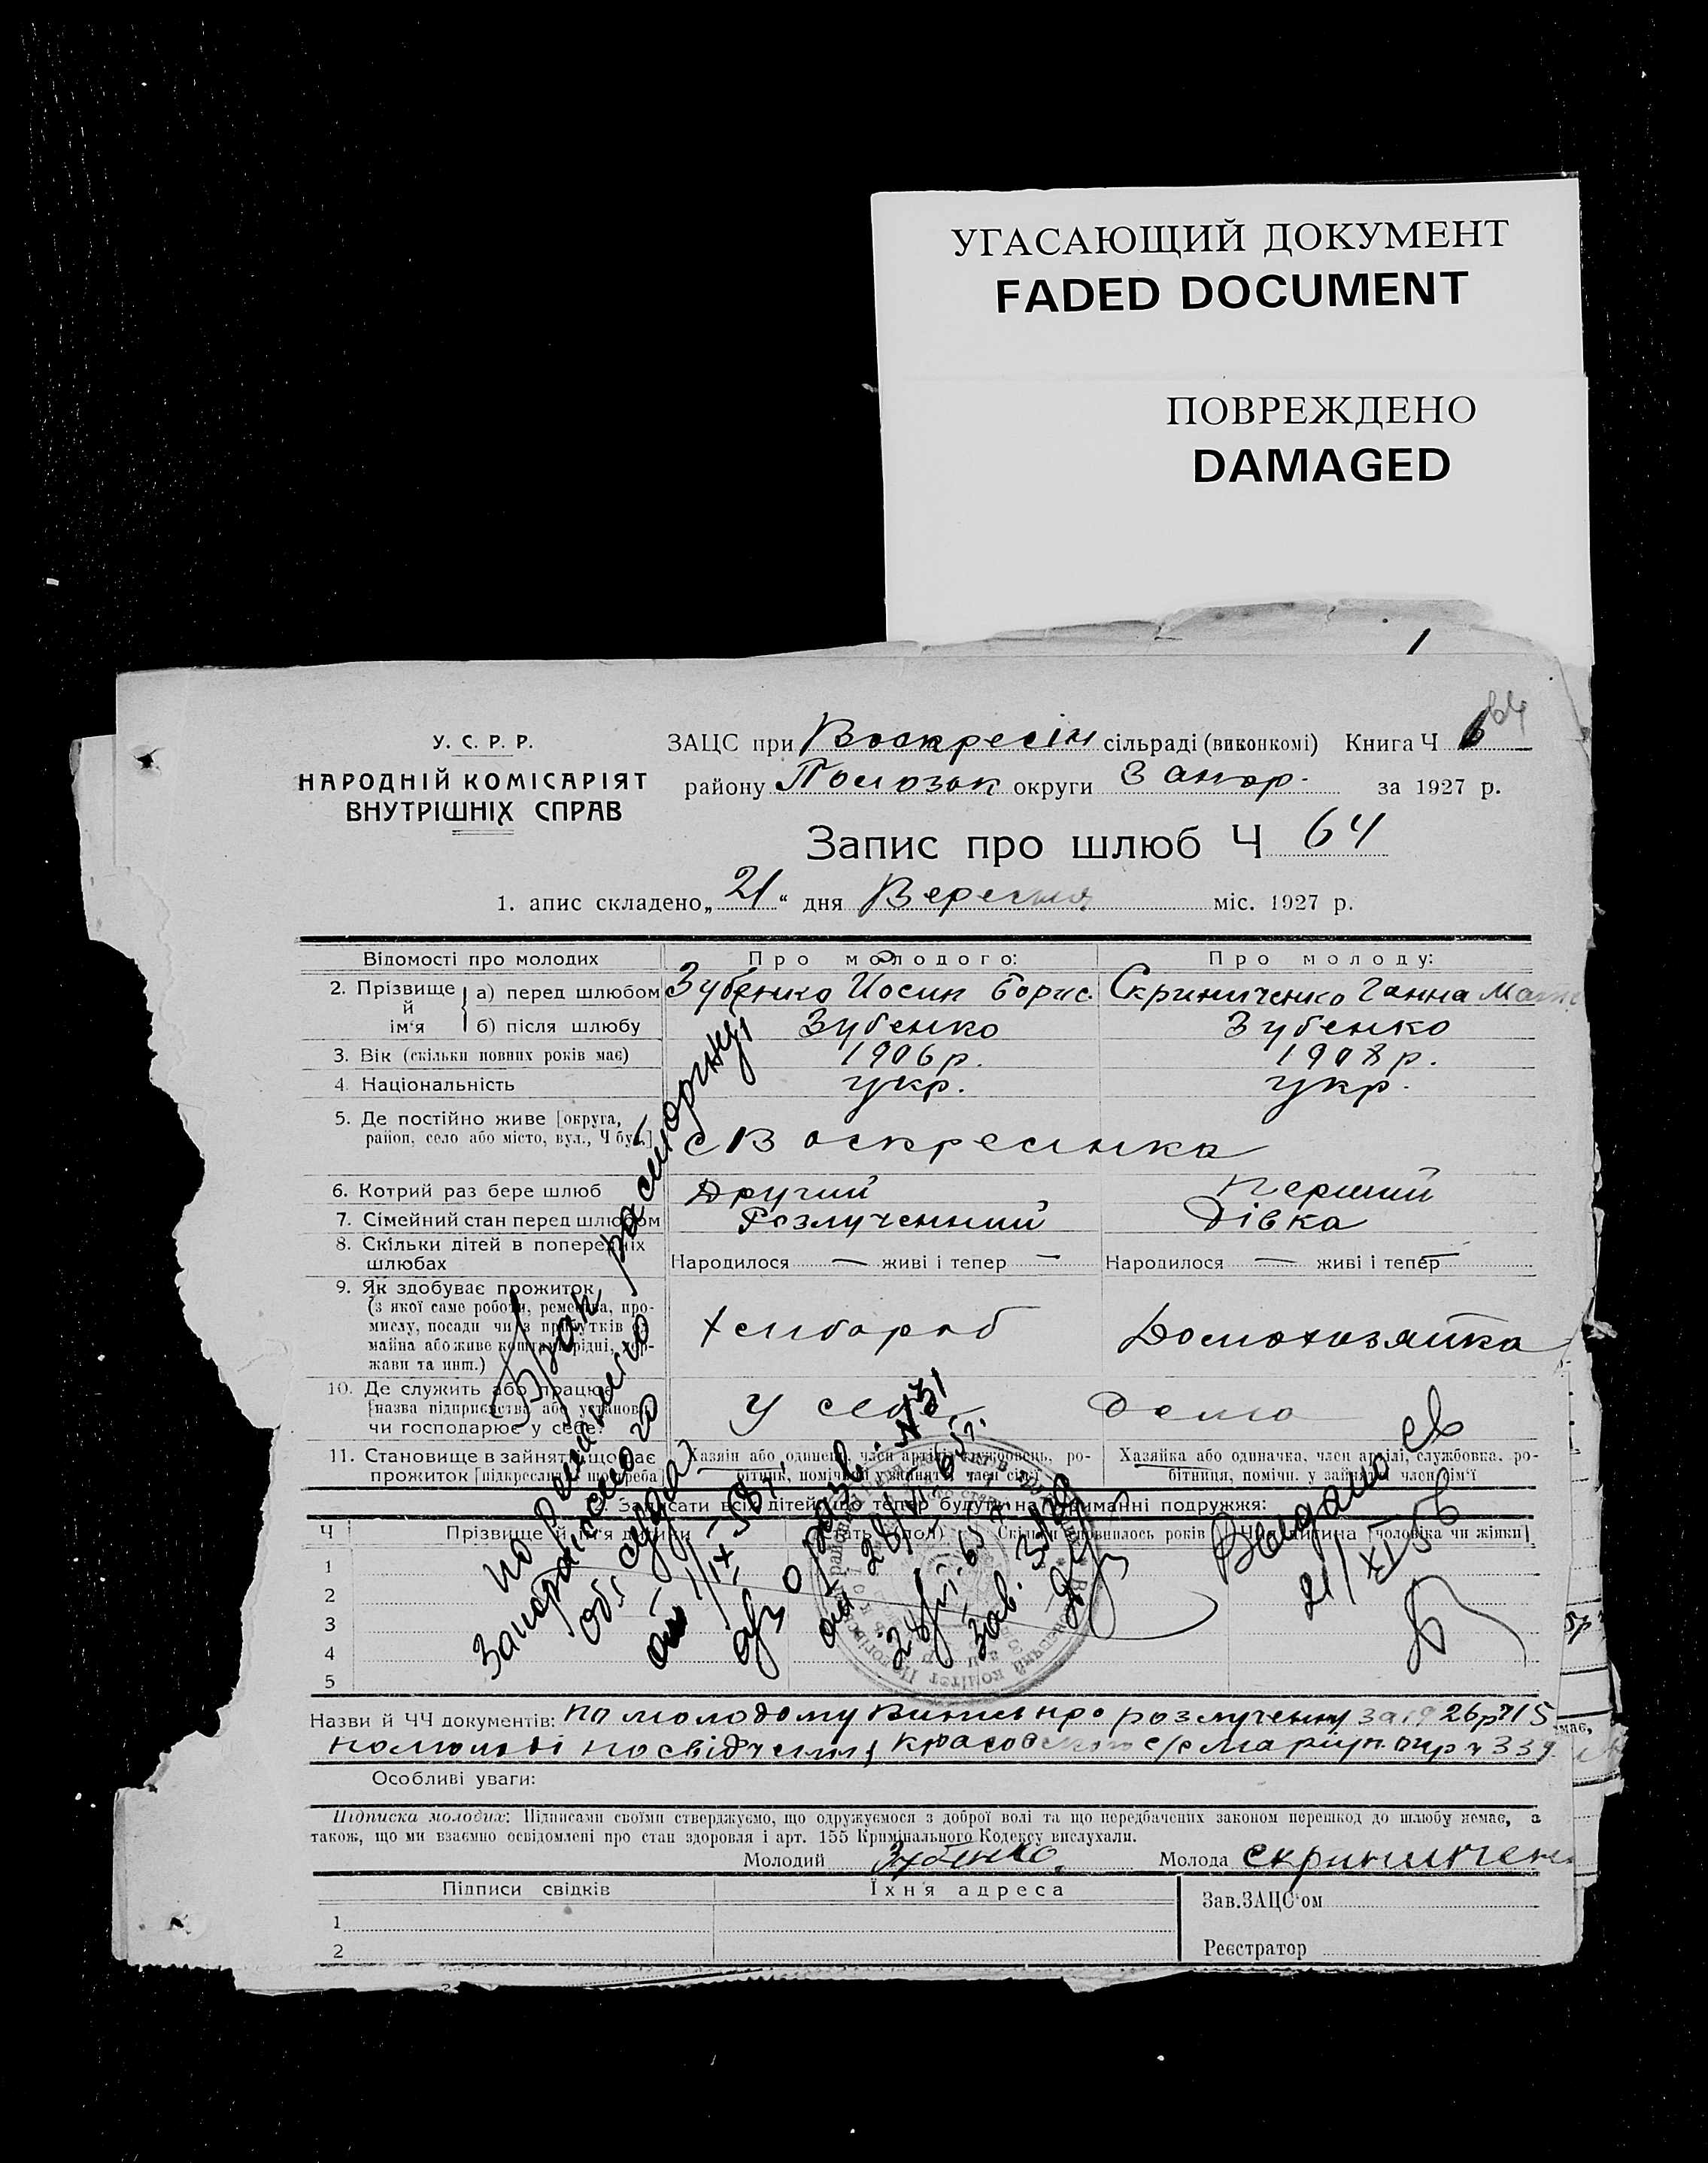 УГАСАЮЩИЙ ДОКУМЕНТ
FADED DOCUMENT
ПОВРЕЖДЕНО
DAMAGED
64
У. С. Р. Р.
НАРОДНІЙ КОМІСАРІЯТ
ВНУТРІШНІХ СПРАВ
ЗАЦС при Воскресін сільраді (виконкомі) Книга Ч 6
району округи Запор. за 1927 р.
Запис про шлюб Ч 64
1. апис складено „21“ дня Вересня міс. 1927 р.
Відомості про молодих Про молодого: Про молоду:
2. Прізвище й ім'я а) перед шлюбом Зубенко Иосип Борис. Скриниченко Ганна
б) після шлюбу Зубенко Зубенко
3. Вік (скільки повних років має) 1906р. 1908р.
4. Національність укр. укр.
5. Де постійно живе [округа,
район, село або місто, вул., Ч буд.] с Воскресенка
6. Котрий раз бере шлюб Другий Перший
7. Сімейний стан перед шлюбом Розлученний Дівка
8. Скільки дітей в попередніх
шлюбах Народилося — живі і тепер — Народилося — живі і тепер —
9. Як здобуває прожиток
(з якої саме роботи, ремества, про-
мислу, посади чи з прибутків
майна або живе
жави та инш.)
Хлибороб Домохозяйка
10. Де служить або працює
[назва підприємства або установ
чи господарює у себе. У себе дома
11. Становище в занятті що дає
прожиток [підкреслити що треба]
Хазяїн або одинець, член артілі, службовець, ро-
бітник, помічник у занятті член сім'ї
Хазяйка або одиначка, член артілі, службовка, ро-
бітниця, помічн. у занятті член сім'ї
Записати всіх дітей, що тепер будуть на утриманні подружжя:
Ч Прізвище й ім'я дитини Скільки сповнилось років Чия дитина [чоловіка чи жінки]
1
2
3
4
5
Брак расторгнут
по решению
Запорізького
обл суда
от 1/IX-58
о разв. №31
от
зав.
Видано св
21/XI 56
Назви й ЧЧ документів: по молодому Випись про розлучення за 1926р ч15
посвідчення с/с Маріуп. окр ч 339
Особливі уваги:
Підписка молодих: Підписами своїми стверджуємо, що одружуємося з доброї волі та що передбачених законом перешкод до шлюбу немає, а
також, що ми взаємно освідомлені про стан здоровля і арт. 155 Кримінального Кодексу вислухали.
Молодий Зубенко Молода Скриничен
Підписи свідків Їхня адреса Зав.ЗАЦС'ом
1
2 Реєстратор